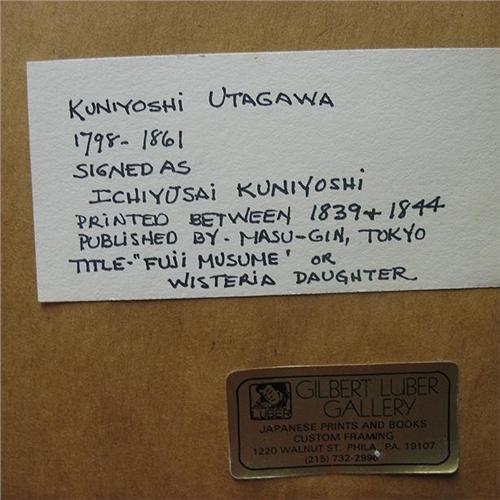 KUNIYOSHI UTAGAWA
1798-1861
SIGNED AS
ICHIYUSAI KUNIYOSHI
PRINTED BETWEEN 1839 + 1844
PUBLISHED BY - MASU-GIN, TOKYO
TITLE-"FUJI MUSUME' OR
WISTERIA DAUGHTER
LUBER
GILBERT LUBER
GALLERY
JAPANESE PRINTS AND BOOKS
CUSTOM FRAMING
1220 WALNUT ST. PHILA., PA. 19107
(215) 732-2996